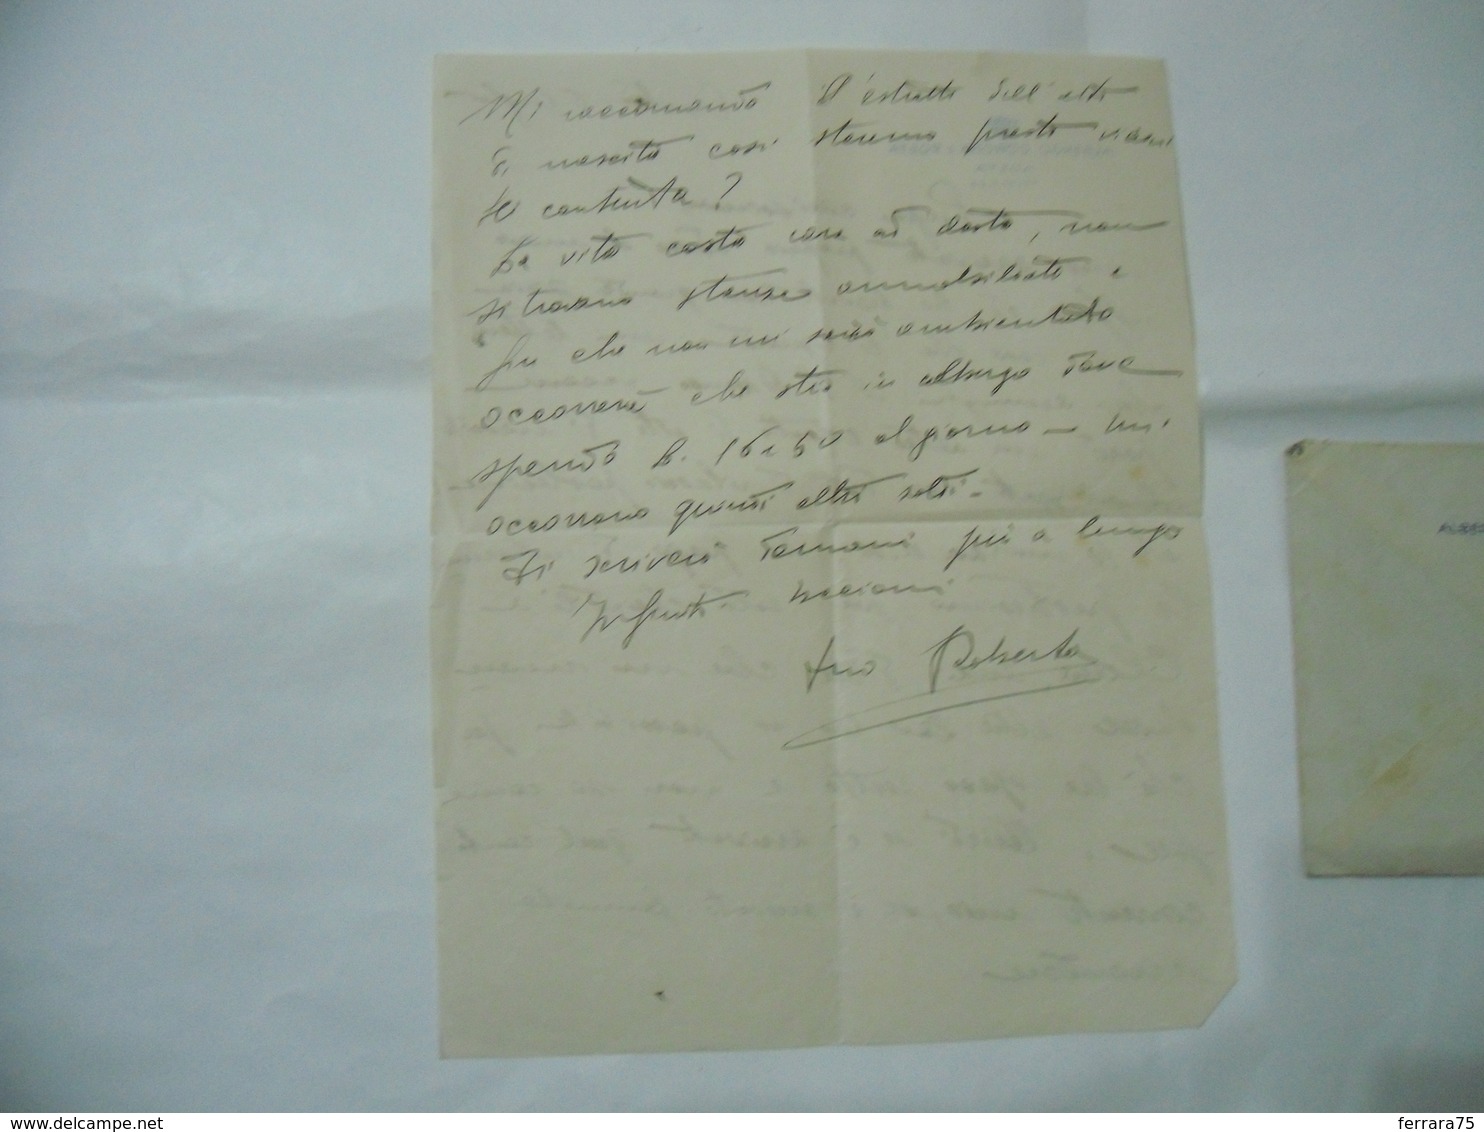 Mi raccomando l'estratto dell'atto
di nascita così staremo presto vicini
sei contenta?
La vita costa cara ad Aosta, non
si trovano stanze ammobiliate e
fin che non mi sarò ambientato
occorrerà che stia in albergo dove
spendo L. 16,50 al giorno – mi
occorrono quindi altri soldi –
Ti scriverò domani più a lungo
Infiniti bacioni
tuo Roberto
delcampe.net
ferrara75